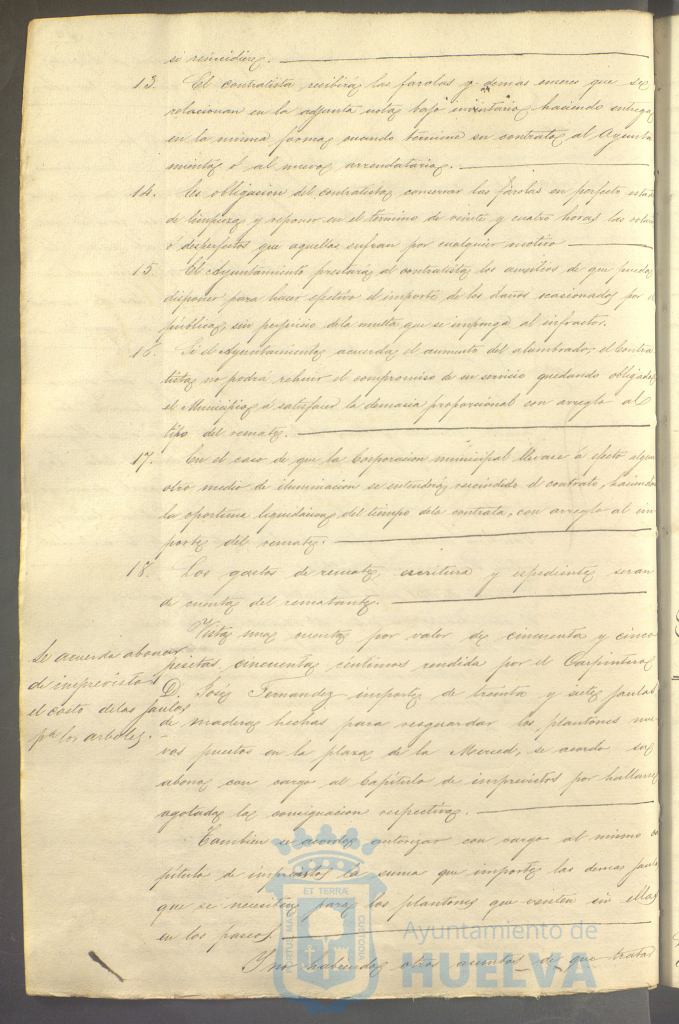 si reincidiere.
13. El contratista recibirá las farolas y demas enseres que se
relacionan en la adjunta nota bajo inventario, haciendo entrega
en la misma forma cuando termine su contrato al Ayunta
miento ó al nuevo arrendatario.
14. Es obligacion del contratista conservar las farolas en perfecto estado
de limpieza y reponer en el término de veinte y cuatro horas las
ó desperfectos que aquellas sufran por cualquier motivo
15. El Ayuntamiento prestará al contratista los auxilios de que pueda
disponer para hacer efectivo el importe de los daños ocasionados por el
público, sin perjuicio dela multa que se imponga al infractor.
16. Si el Ayuntamiento acuerda el aumento del alumbrado, el Contra
tista no podrá rehuir el compromiso de su servicio quedando obligado
el Municipio á satisfacer la demasia proporcional con arreglo al
tipo del remate.
17. En el caso de que la Corporacion municipal llevase á efecto algun
otro medio de iluminacion se entenderá rescindido el contrato, haciendo
la oportuna liquidacion del tiempo dela contrata, con arreglo al im
porte del remate.
18. Los gastos de remate, escritura y espediente seran
de cuenta del rematante.
Se acuerda abonar
de imprevistos
el costo delas jaulas
pa los arboles.
Vista una cuenta por valor de cincuenta y cinco
pesetas cincuenta centimos rendida por el Carpintero
D. José Fernandez importe de treinta y siete jaulas
de madera hechas para resguardar los plantones nue
vos puestos en la plaza de la Merced, se acordó su
abono con cargo al Capítulo de imprevistos por hallarse
agotada la consignacion respectiva.
Tambien se acordó autorizar con cargo al mismo ca
pítulo de imprevistos la suma que importe las demas jaulas
que se necesiten para los plantones que esisten sin ellas
en los paseos.
Y no habiendo otros asuntos de que tratar
ET TERRÆ
CUSTODIA
Ayuntamiento de
HUELVA